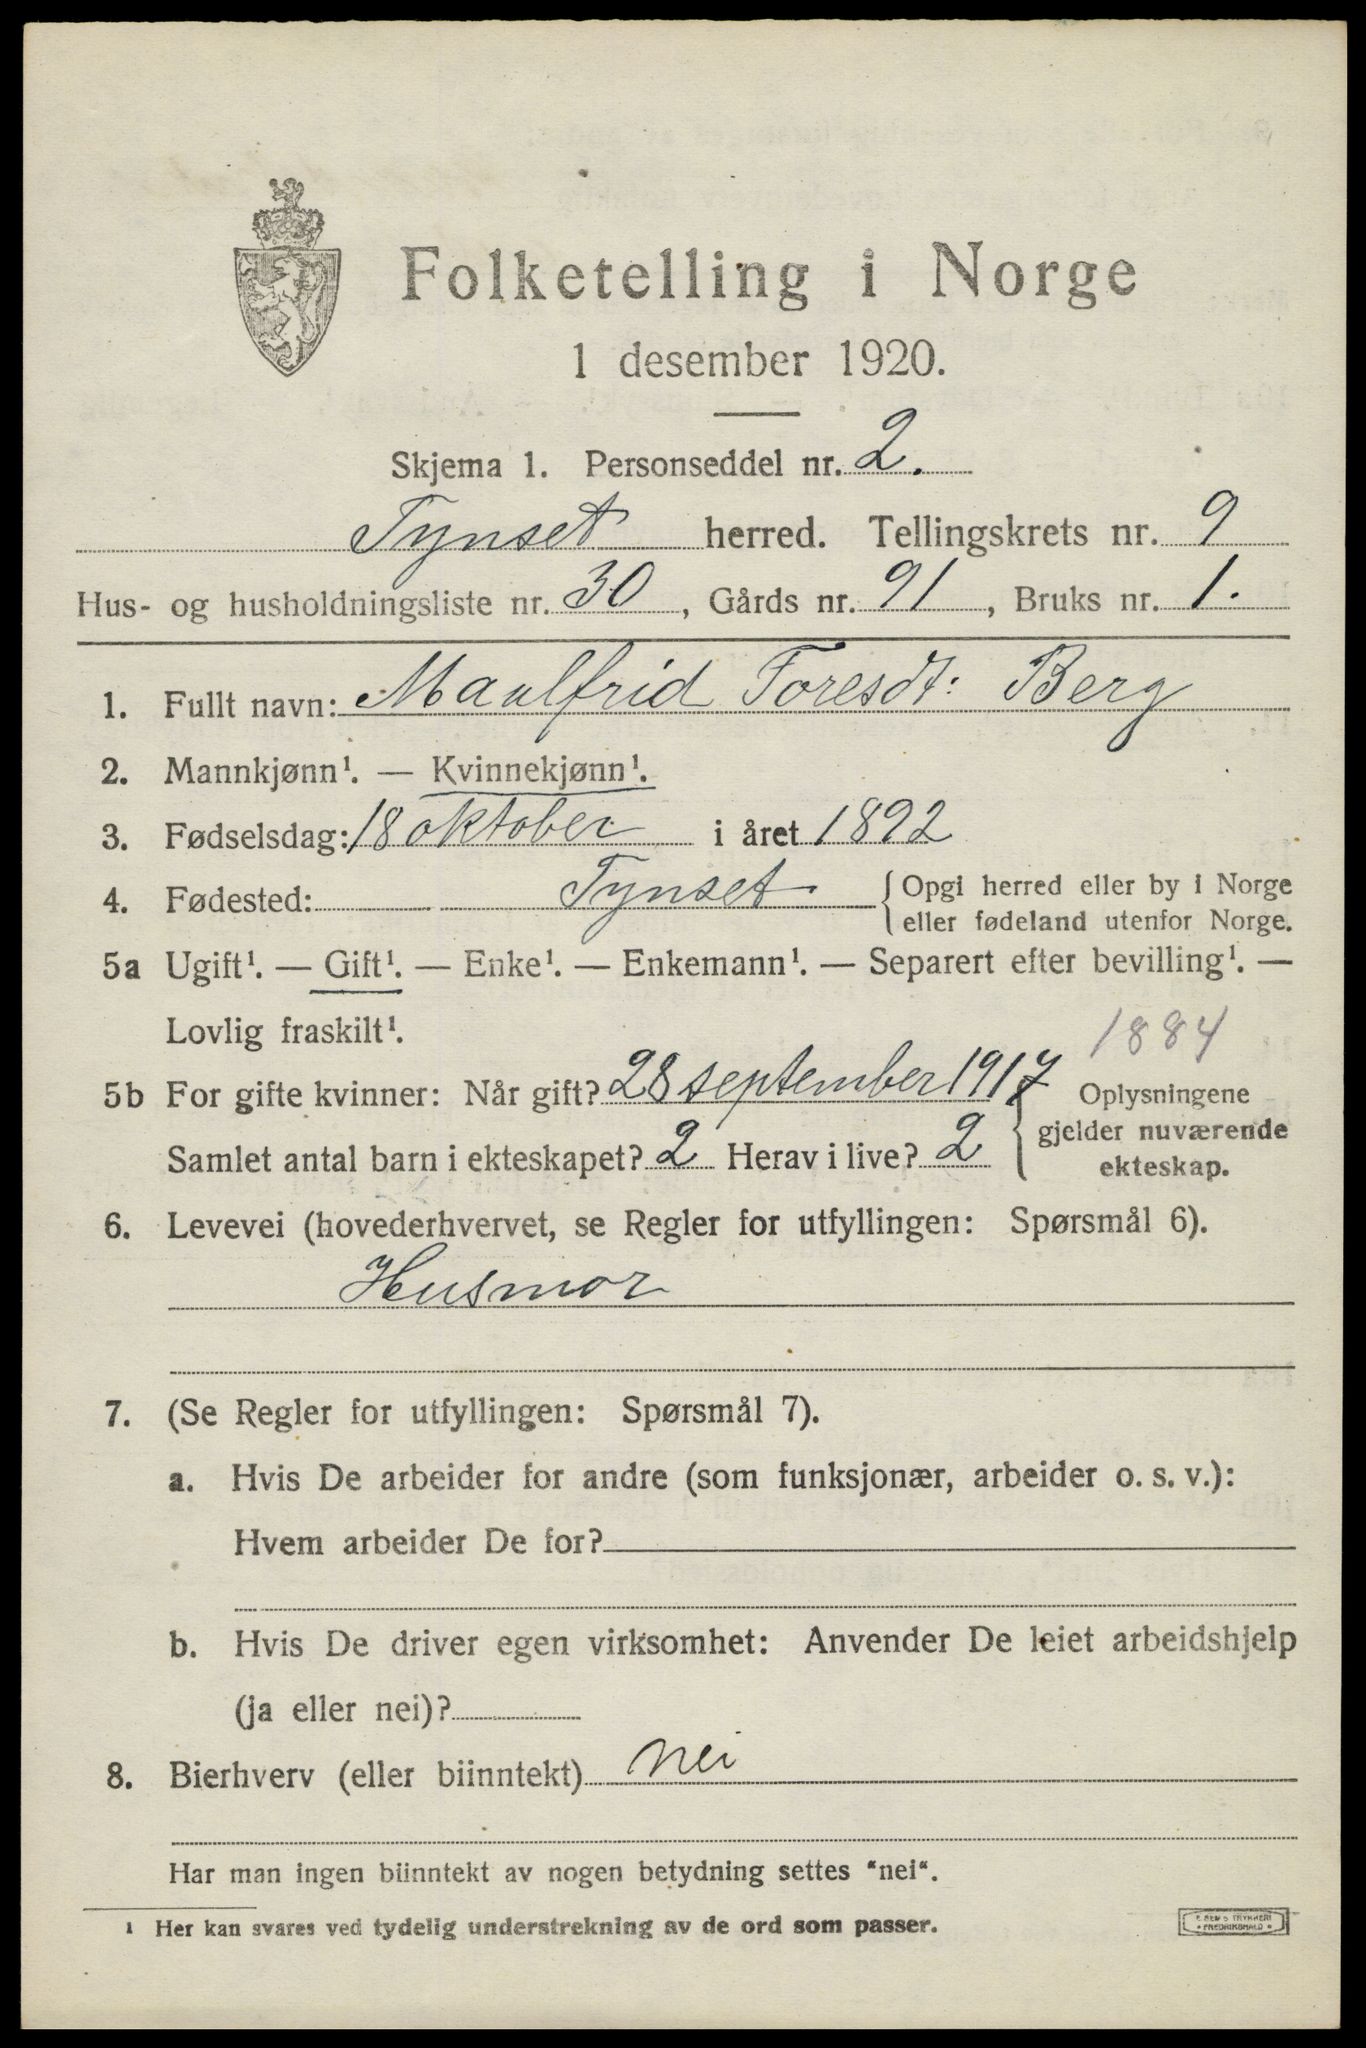 Folketelling i Norge
1 desember 1920.
Skjema 1. Personseddel nr. 2.
Tynset herred. Tellingskrets nr. 9
Hus- og husholdningsliste nr. 30, Gårds nr. 91, Bruks nr. 1.
1. Fullt navn: Maalfrid Toresdt: Berg
2. Mannkjønn¹. — Kvinnekjønn¹.
3. Fødselsdag: 18 oktober i året 1892
4. Fødested: Tynset {Opgi herred eller by i Norge
eller fødeland utenfor Norge.
5a Ugift¹. — Gift¹. — Enke¹. — Enkemann¹. — Separert efter bevilling¹. —
Lovlig fraskilt¹.
1884
5b For gifte kvinner: Når gift? 28 september 1917 { Oplysningene
gjelder nuværende
Samlet antal barn i ekteskapet? 2 Herav i live? 2
ekteskap.
6. Levevei (hovederhvervet, se Regler for utfyllingen: Spørsmål 6).
Husmor
7. (Se Regler for utfyllingen: Spørsmål 7).
a. Hvis De arbeider for andre (som funksjonær, arbeider o. s. v.):
Hvem arbeider De for?
b. Hvis De driver egen virksomhet: Anvender De leiet arbeidshjelp
(ja eller nei)?
8. Bierhverv (eller biinntekt) nei
Har man ingen biinntekt av nogen betydning settes "nei".
¹ Her kan svares ved tydelig understrekning av de ord som passer.
E. SEM'S TRYKKERI
* FREDRIKSHALD *